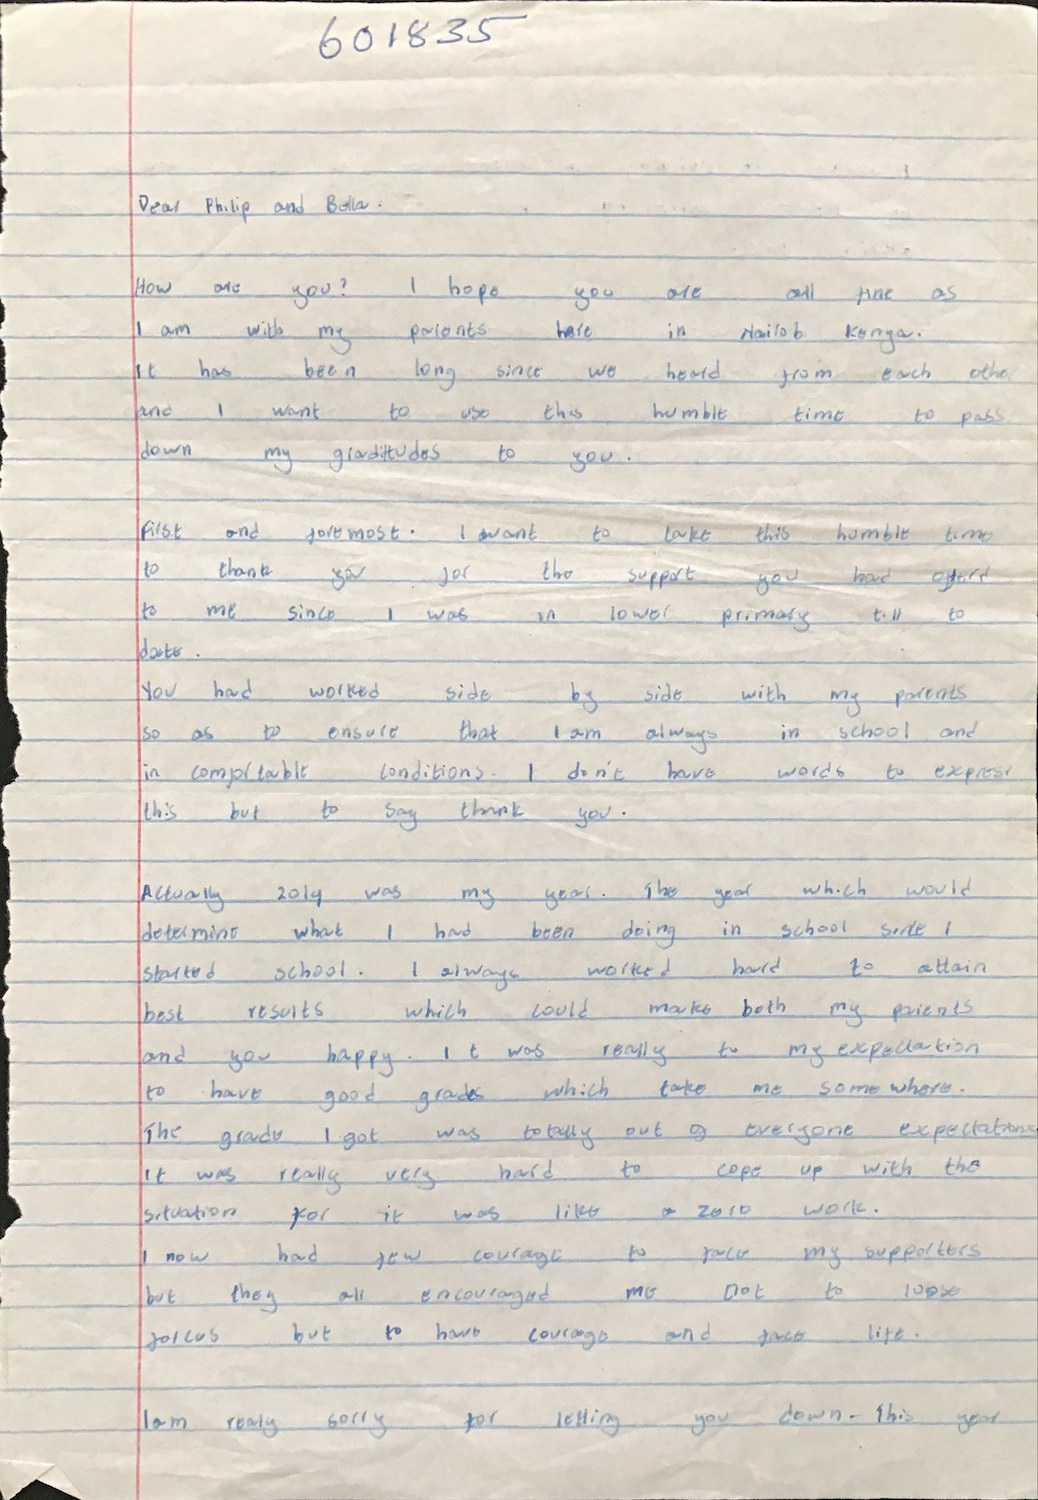 601835
Dear Philip and Bella.
How are you? I hope you are all fine as
I am with my parents here in Nairob Kenya.
It has been long since we heard from each othe
and I want to use this humble time to pass
down my gradittudes to you.
First and foremost. I want to take this humble time
to thank you for the support you had offerd
to me since I was in lower primary till to
date.
You had worked side by side with my parents
so as to ensure that I am always in school and
in comfortable conditions. I don't have words to express
this but to say thank you.
Actually 2019 was my year. The year which would
determine what I had been doing in school since I
started school. I always worked hard to attain
best results which could make both my parients
and you happy. It was really to my expectation
to have good grades which take me somewhere.
The grade I got was totally out of everyone expectations
it was really very hard to cope up with the
situation for it was like a zero work.
I now had few courage to face my supporters
but they all encouraged me not to loose
forcus but to have courage and face life.
Iam realy sorry for letting you down. This year